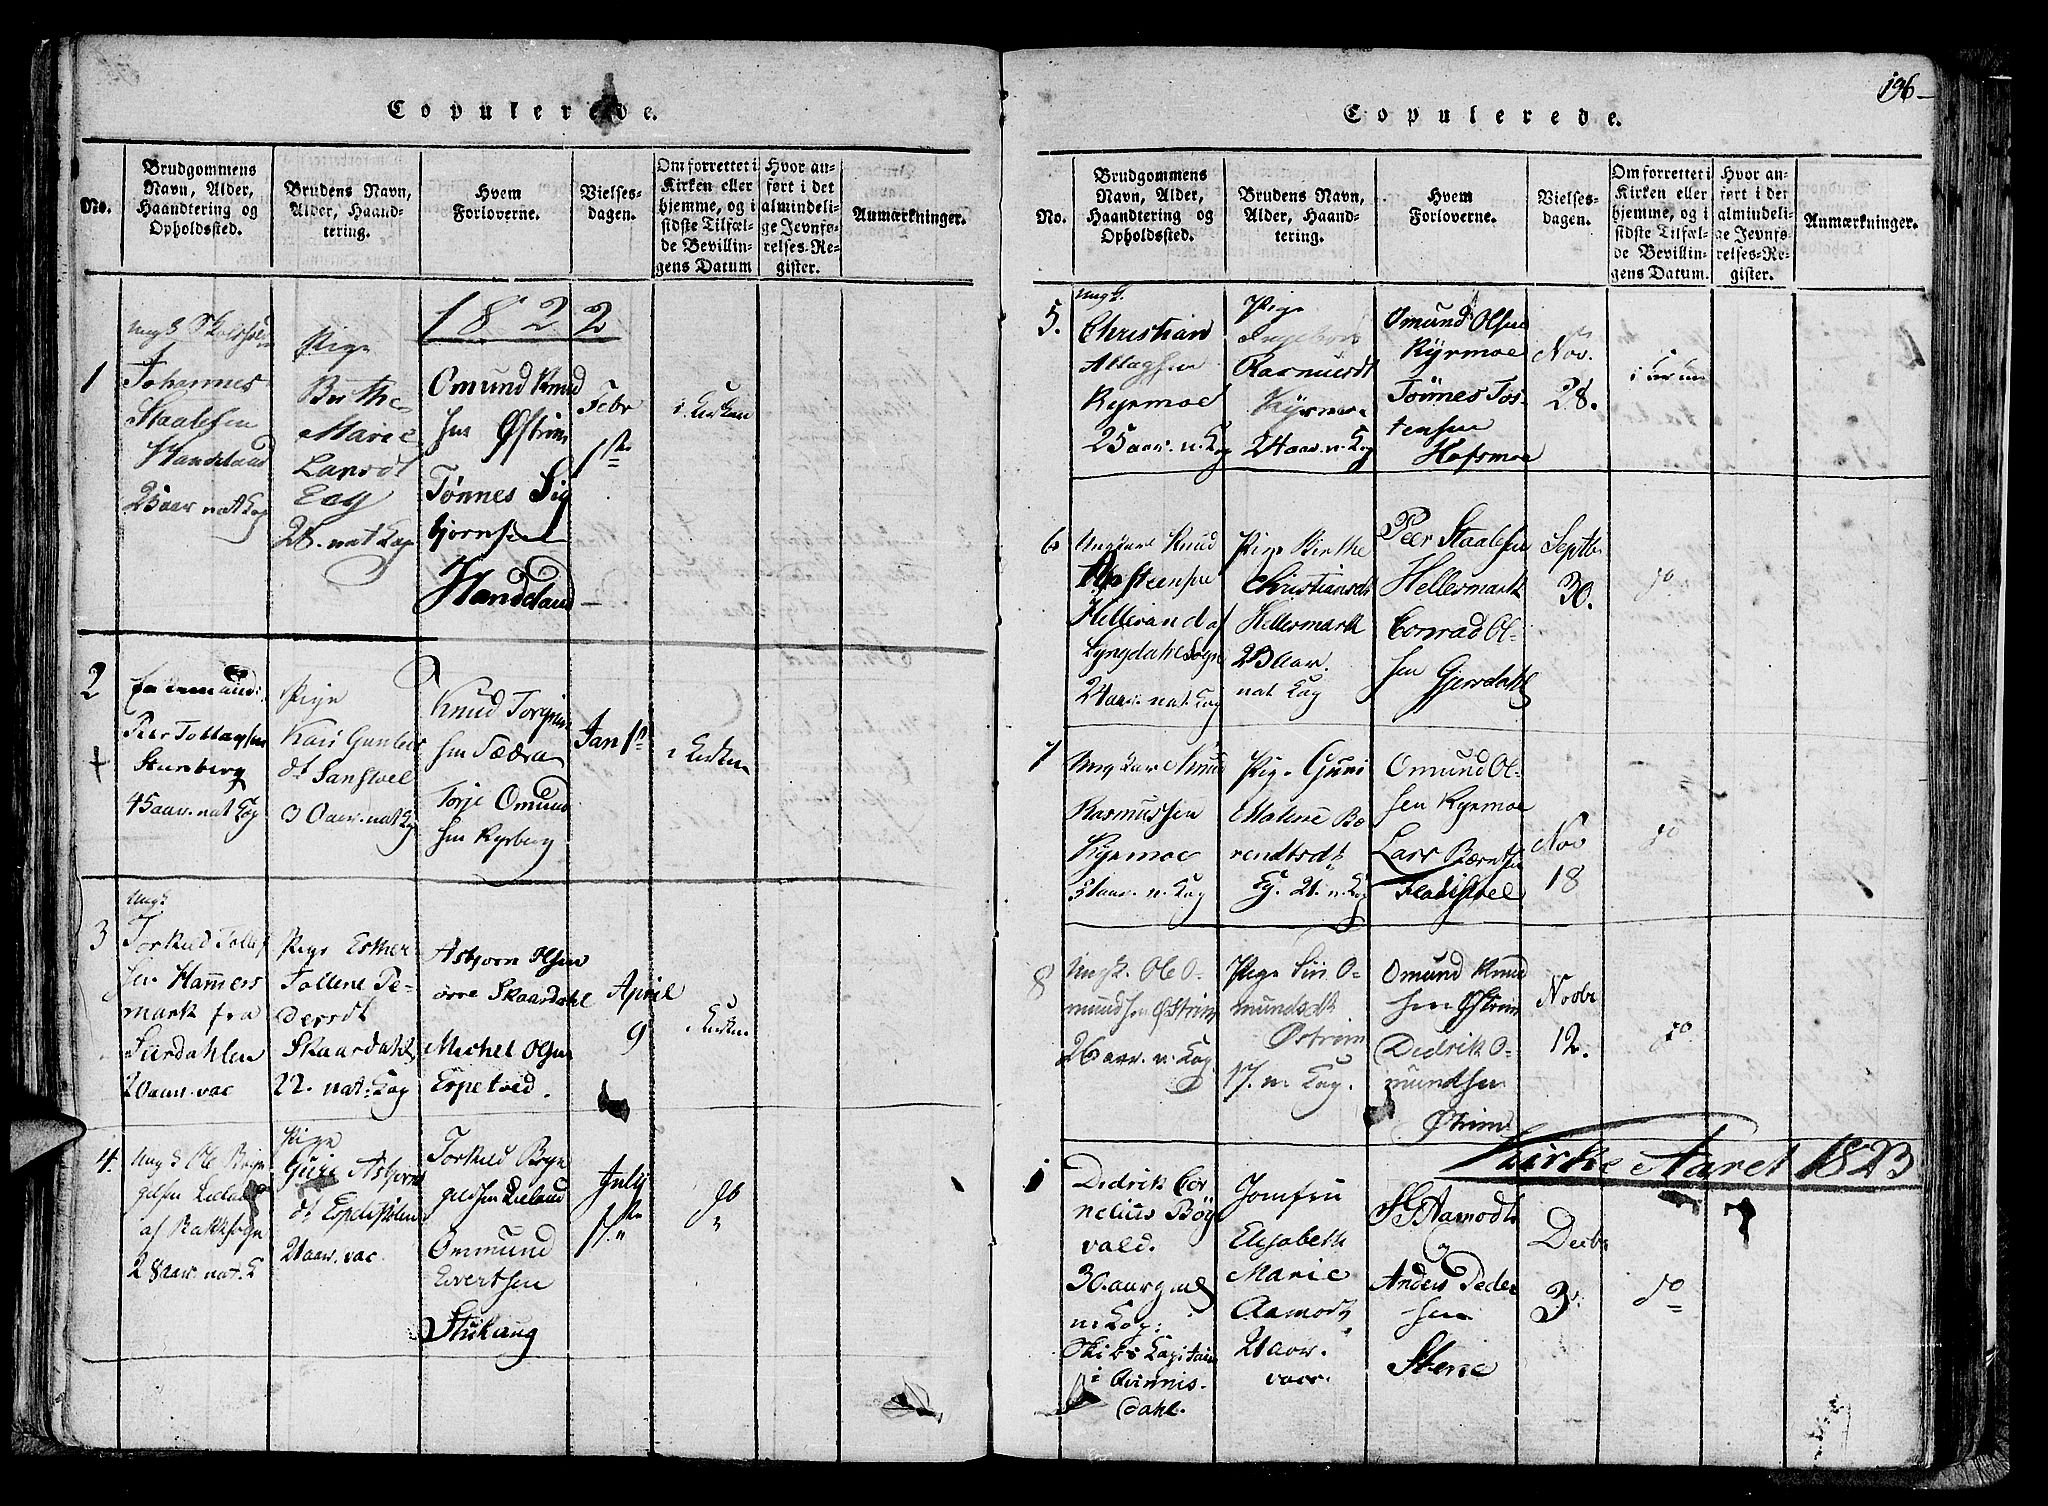 Copulerede.
No.
Brudgommens
Navn, Alder,
Haandtering og
Opholdssted.
Brudens Navn,
Alder, Haand-
tering.
Hvem
Forloverne.
Vielses-
dagen.
Om forrettet i
Kirken eller
hjemme, og i
sidste Tilfæl-
de Bevillin-
gens Datum
Hvor an-
ført i det
almindeli-
ge Jevnfø-
relses-Re-
gister.
Anmærkninger.
1822
1
Johannes
Staalesen
Handeland
25 aar nat Cop
Pige
Birthe
Marie
Larsdt
Eeg
28. nat Cop
Omund Knud
sen Østrim
Tønnes Sig
bjørnsen
Handeland
Febr
1ste
i Kirken
2
Enkemand:
Peer Tollagsen
Stenberg
45 aar. nat Cop
Pige
Kari Gunbor
dt Sansvel
30 aar. nat Cop
Knud Torgus
sen Sædra
Torje Omund
sen Rysberg
Jan 1ste
i Kirken
3
Ungk
Torkild Tollef
sen Hammers
mark fra
Siirdahlen
20 aar. vac
Pige Esther
Tollene Pe-
dersdt
Skaardahl
22. nat. Cop
Asbjørn Olsen
øvre Skaardahl
Michel Olsen
Espetved.
April
9
i Kirken
4.
Ungk Ole Bryn
gelsen Leeland
af Bakkesogn
28 aar. nat. C
Pige
Guri Asbjørns
dt Espetvedten
21 aar. vac.
Torkild Bryn
gelsen Leeland
Ommund
Evertsen
Stikaug
July
1ste
do
Copulerede.
196
No.
Brudgommens
Navn, Alder,
Haandtering og
Opholdssted.
Brudens Navn,
Alder, Haand-
tering.
Hvem
Forloverne.
Vielses-
dagen.
Om forrettet i
Kirken eller
hjemme, og i
sidste Tilfæl-
de Bevillin-
gens Datum.
Hvor an-
ført i det
almindeli-
ge Jevnfø-
relses-Re-
gister.
Anmærkninger.
5.
Ungk.
Christian
Attagsen
Ryrmoe
25 aar. n. Cop
Pige
Ingebor
Rasmusdt
Kyrmoe
24 aar. n. Cop
Omund Olsen
Kyrmoe
Tønnes Tos-
tensen
Hofsmoe
Nov.
28.
i Kirken
6
Ungkarl Knud
Helleran af
Lyngdahl Sogn
24 aar. nat. Cop
Pige Birthe
Christiansdt
Hellermark
23 aar.
nat Cop
Peer Staalesen
Hellermark
Conrad Ol-
sen Gjersdahl
Septb.
30.
do
7
Ungkarl Knud
Rasmussen
Kyrmoe
aar. n. Cop
Pige Guri
Malene Be
rendtsdt
Eg. 21. n. Cop
Omund Ol-
sen Kyrmoe
Lars Berntsen
Nov
18
do
8
Ungk. Ole O-
mundsen Østrim
26 aar. n. Cop.
Pige Siri O-
mundsdt
Østrim
17. n Cop.
Omund Knud
sen Østrim
Didrik O-
mundsen
Østrim
Novbr
12.
do
Kirke Aaret 1823
1
Didrik Cor
nelius Böy
vald.
30. aar gml
n. Cop:
Skibs Kapitain
i Qvinnis-
dahl.
Jomfru
Elisabeth
Marie
Aamodt
21 aar.
vacc.
Aamodt
og
Anders Peder
sen
Stene
Decbr
3
do